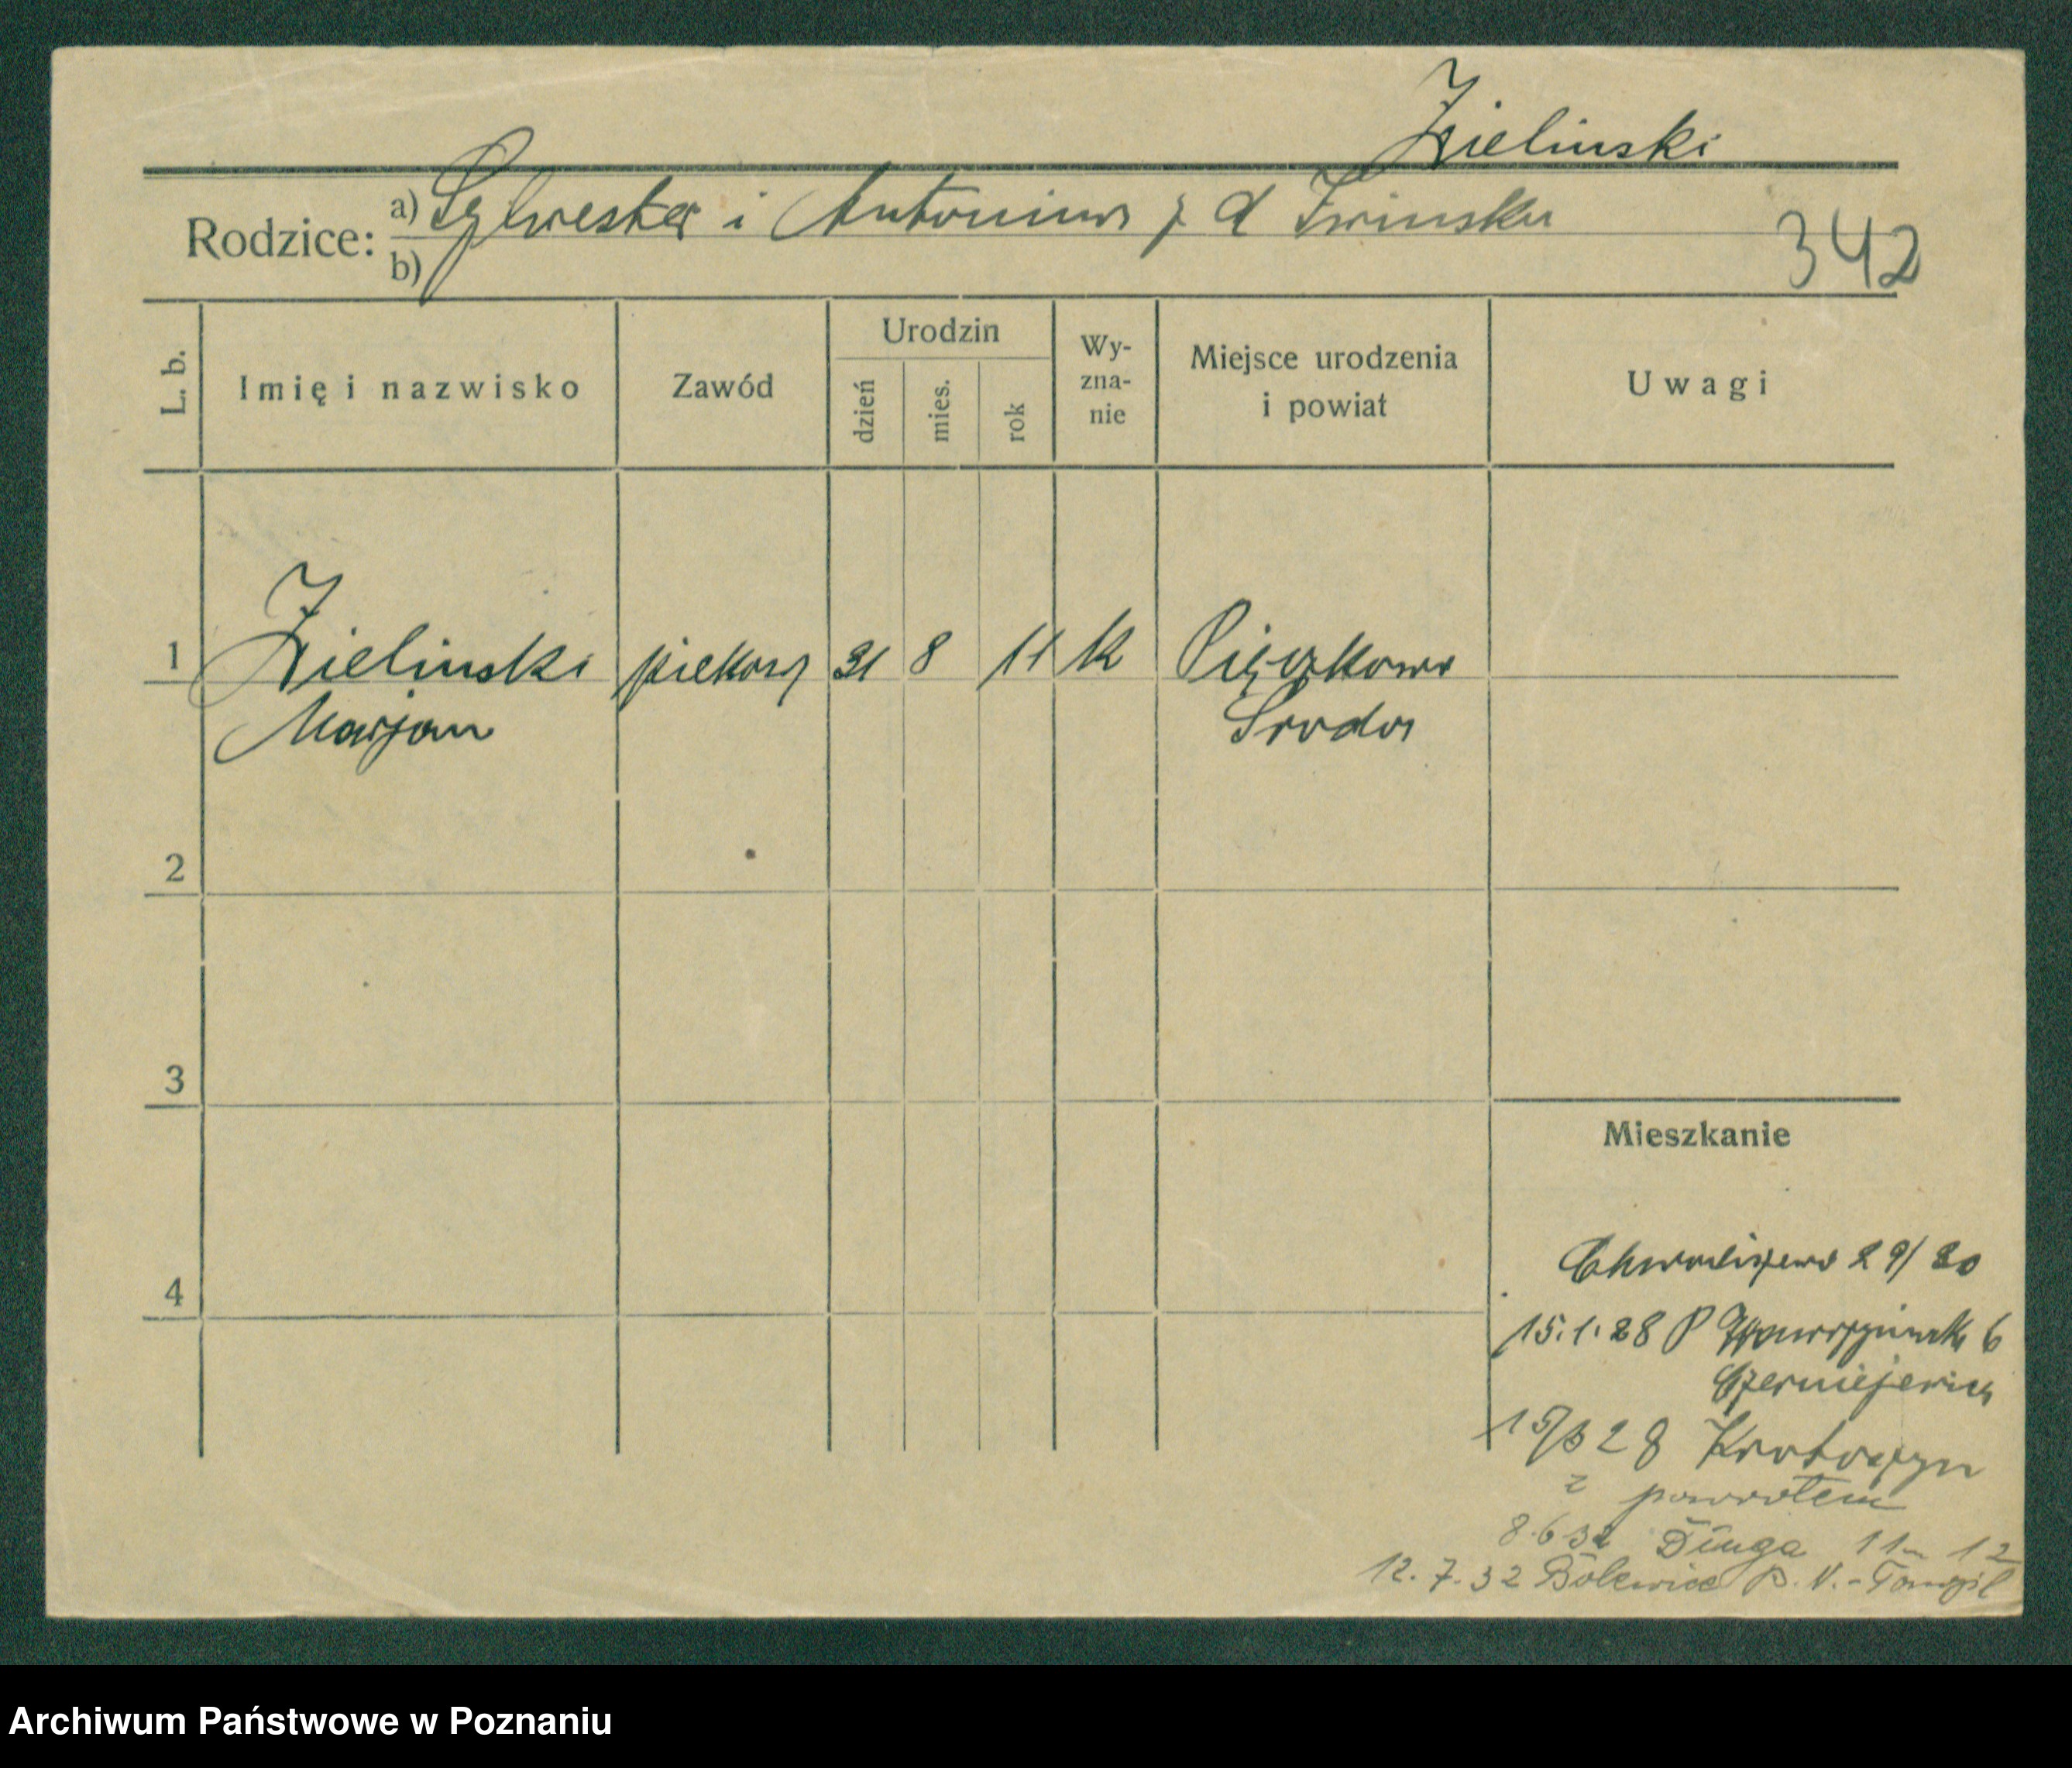 Zielinski
Rodzice: a) Sylwester i Antonina z d
b)
342
L. b.
Imię i nazwisko
Zawód
Urodzin
dzień
mies.
rok
Wy-
zna-
nie
Miejsce urodzenia
i powiat
Uwagi
1 Zielinski piekarz 31 8 11 k Pięczkowo
Marjan Środa
2
3
Mieszkanie
4
Chwaliszewo 29/30
15.1.28 P 6
Czerniejewica
28 Krotoszyn
z powrotem
8.6 32 Długa 11 12
12.7.32 Bolewice p. N.-Tomyśl
Archiwum Państwowe w Poznaniu